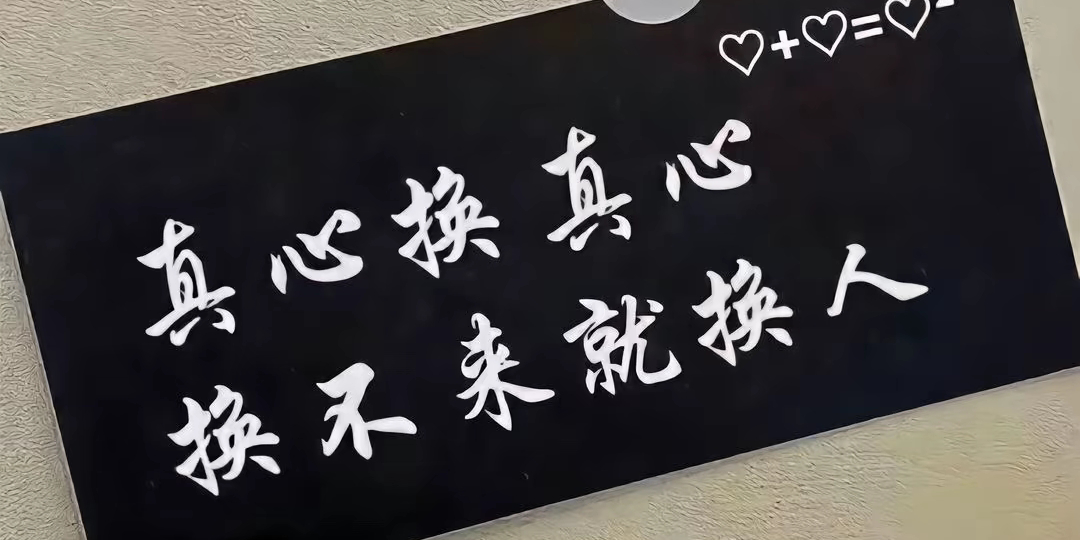 ♡+♡=♡
真心换真心
换不来就换人